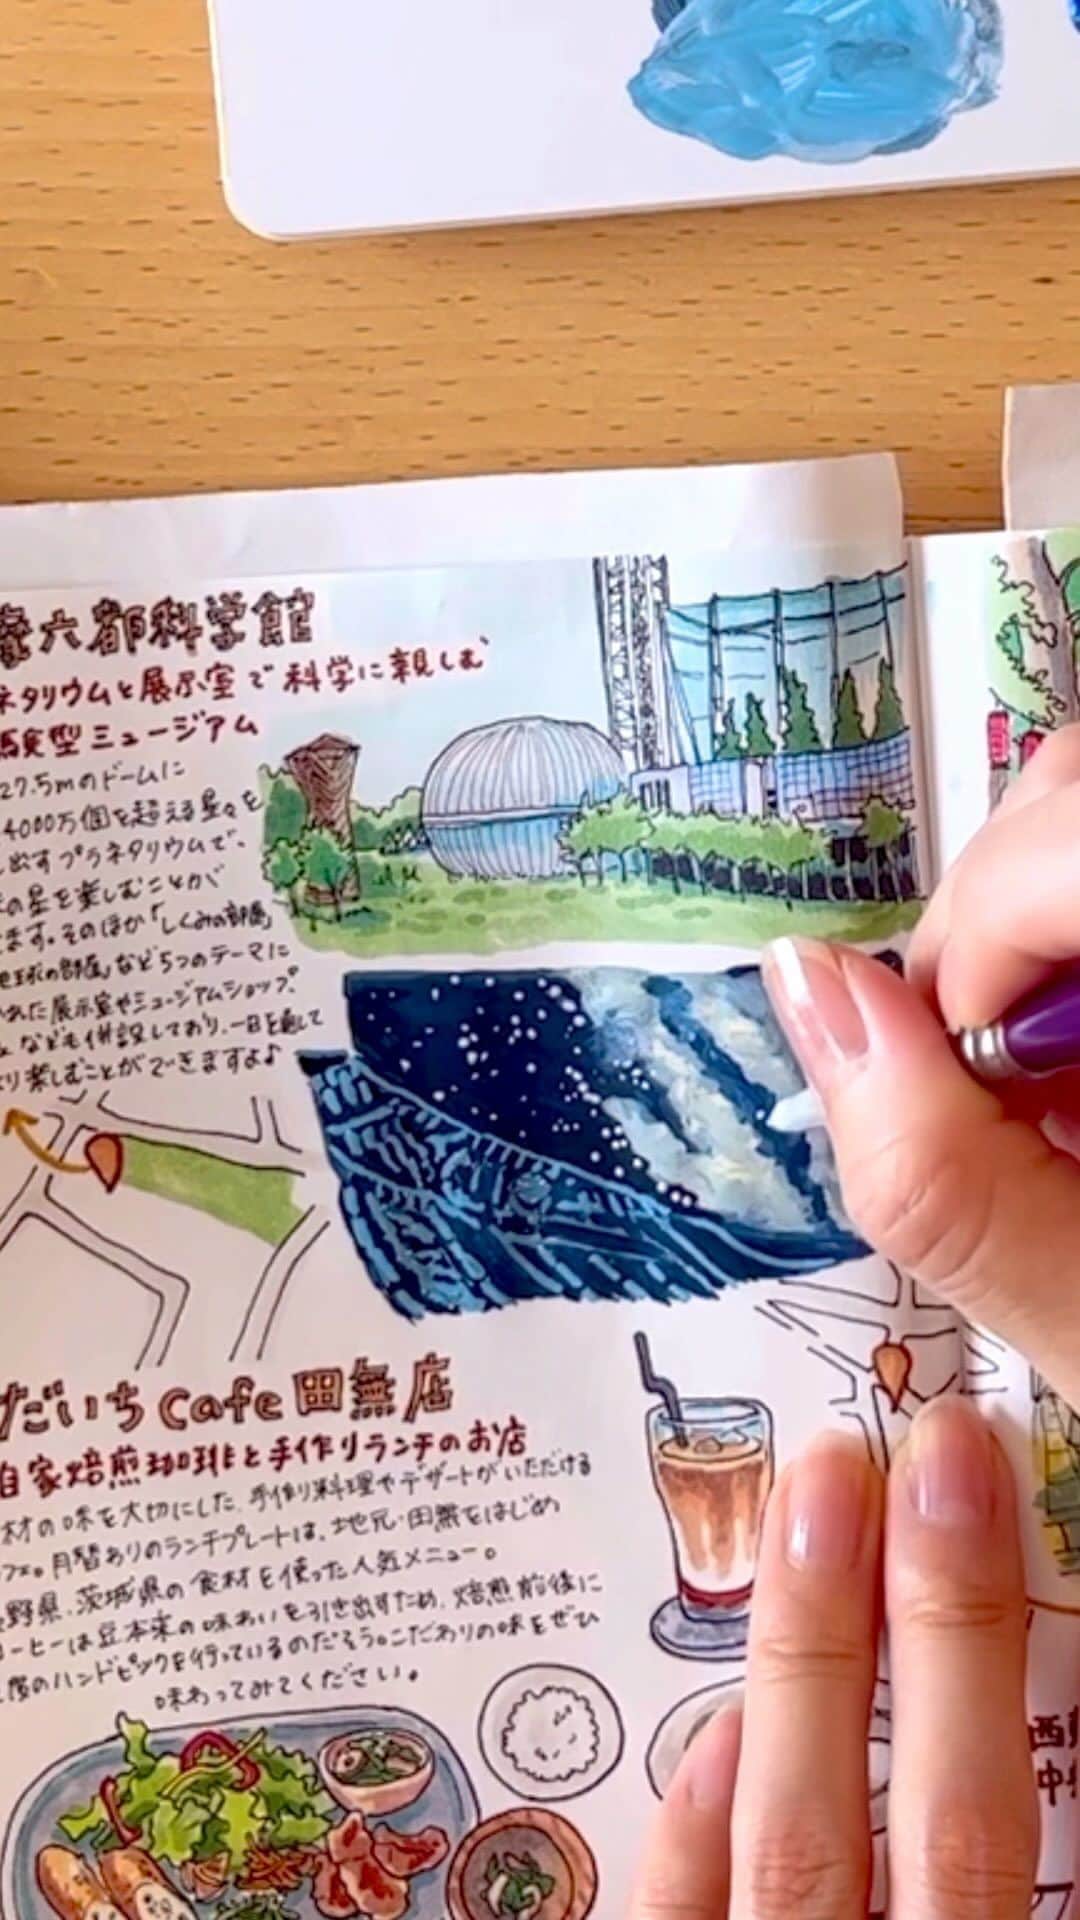 六都科学館
ネタリウムと展示室で科学に親しむ
験型ミュージアム
27.5mのドームに
4000万個を超える星々を
出すプラネタリウムで、
の星を楽しむことが
ます。そのほか「しくみの部屋」
地球の部屋」など5つのテーマに
かれた展示室やミュージアムショップ、
なども併設しており、一日を通して
り楽しむことができますよ♪
だいちcafe田無店
自家焙煎珈琲と手作りランチのお店
材の味を大切にした、手作り料理やデザートがいただける
フェ。月替ありのランチプレートは、地元・田無をはじめ
野県、茨城県の食材を使った人気メニュー。
コーヒーは豆本来の味わいを引き出すため、焙煎前後に
度のハンドピックを行っているのだそう。こだわりの味をぜひ
味わってみてください。
西
中